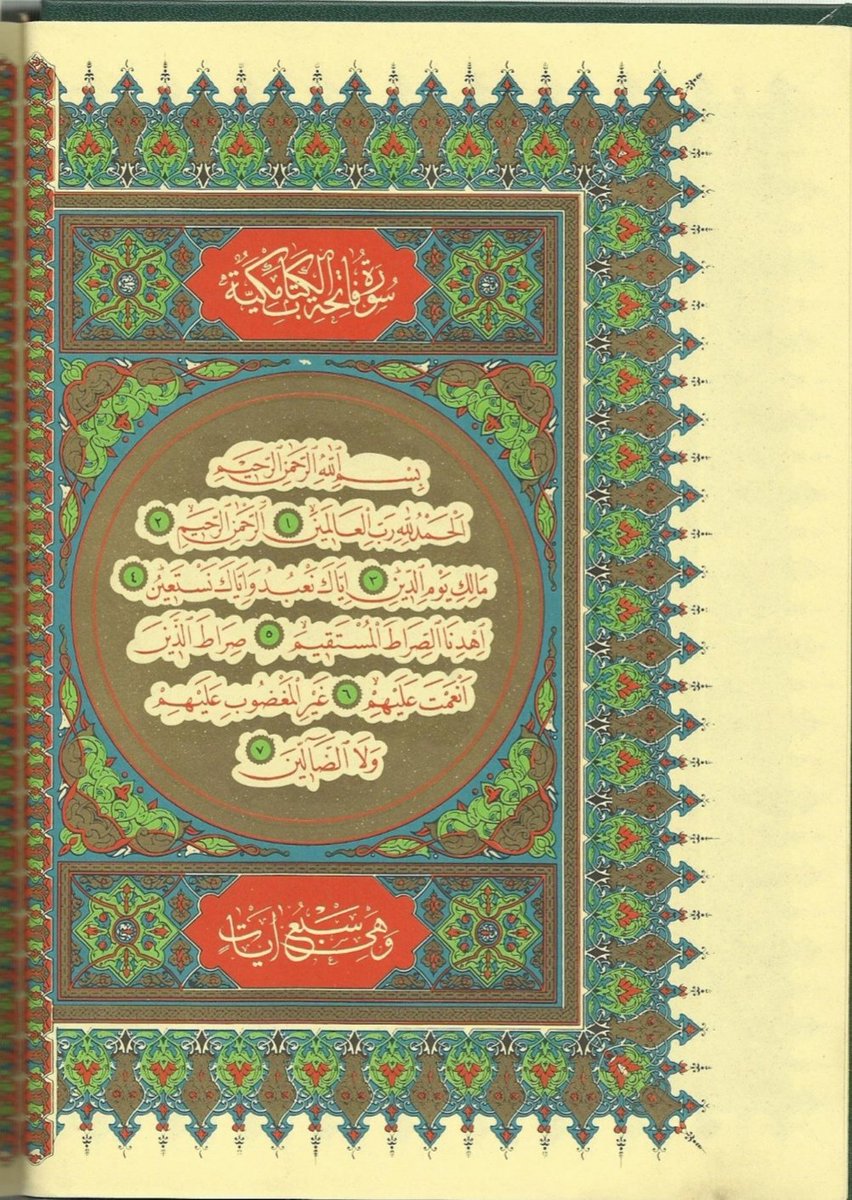 سُورَةُ فَاتِحَةِ الْكِتَابِ مَكِّيَّةٌ
بِسْمِ اللَّهِ الرَّحْمَنِ الرَّحِيمِ
اَلْحَمْدُ لِلَّهِ رَبِّ الْعَالَمِينَ ١ اَلرَّحْمَنِ الرَّحِيمِ ٢
مَالِكِ يَوْمِ الدِّينِ ٣ اِيَّاكَ نَعْبُدُ وَاِيَّاكَ نَسْتَعِينُ ٤
اِهْدِنَا الصِّرَاطَ الْمُسْتَقِيمَ ٥ صِرَاطَ الَّذِينَ
اَنْعَمْتَ عَلَيْهِمْ ٦ غَيْرِ الْمَغْضُوبِ عَلَيْهِمْ
وَلَا الضَّآلِّينَ ٧
وَهْيَ سَبْعُ أَيَاتٍ